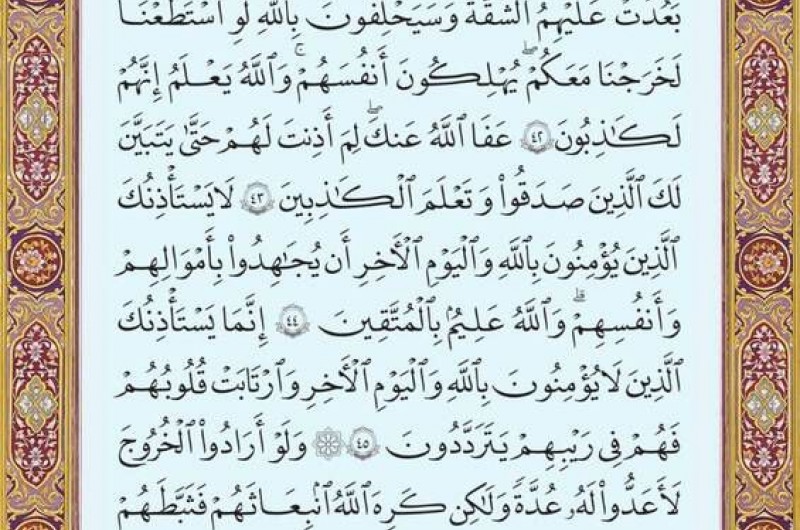 بَعُدَتْ عَلَيْهِمُ الشُّقَّةُ وَسَيَحْلِفُونَ بِاللَّهِ لَوِ اسْتَطَعْنَا
لَخَرَجْنَا مَعَكُمْ ۖ يُهْلِكُونَ أَنفُسَهُمْ ۚ وَاللَّهُ يَعْلَمُ إِنَّهُمْ
لَكَٰذِبُونَ ٤٢ عَفَا اللَّهُ عَنكَ ۖ لِمَ أَذِنتَ لَهُمْ حَتَّىٰ يَتَبَيَّنَ
لَكَ الَّذِينَ صَدَقُوا۟ وَتَعْلَمَ الْكَٰذِبِينَ ٤٣ لَا يَسْتَـْٔذِنُكَ
الَّذِينَ يُؤْمِنُونَ بِاللَّهِ وَالْيَوْمِ الْـَٔاخِرِ أَن يُجَٰهِدُوا۟ بِأَمْوَٰلِهِمْ
وَأَنفُسِهِمْ ۗ وَاللَّهُ عَلِيمٌۢ بِالْمُتَّقِينَ ٤٤ إِنَّمَا يَسْتَـْٔذِنُكَ
الَّذِينَ لَا يُؤْمِنُونَ بِاللَّهِ وَالْيَوْمِ الْـَٔاخِرِ وَارْتَابَتْ قُلُوبُهُمْ
فَهُمْ فِى رَيْبِهِمْ يَتَرَدَّدُونَ ٤٥ ۞ وَلَوْ أَرَادُوا۟ الْخُرُوجَ
لَأَعَدُّوا۟ لَهُۥ عُدَّةً وَلَٰكِن كَرِهَ اللَّهُ انۢبِعَاثَهُمْ فَثَبَّطَهُمْ